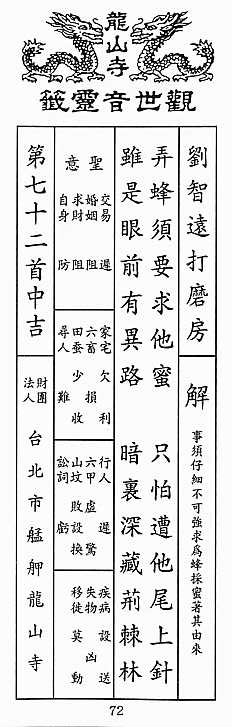 龍山寺
觀世音靈籤
劉智遠打磨房
解
事須仔細不可強求為蜂採蜜著其由來
弄蜂須要求他蜜 只怕遭他尾上針
雖是眼前有異路 暗裏深藏荊棘林
聖意
交易 遲
婚姻 阻
求財 阻
自身 防
家宅 欠利
六畜 損
田蚕 少收
尋人 難
行人 遲
六甲 虛驚
山坟 敗設換
訟詞 虧
疾病 設送
失物 凶
移徙 莫動
第七十二首中吉
財團法人 台北市艋舺龍山寺
72